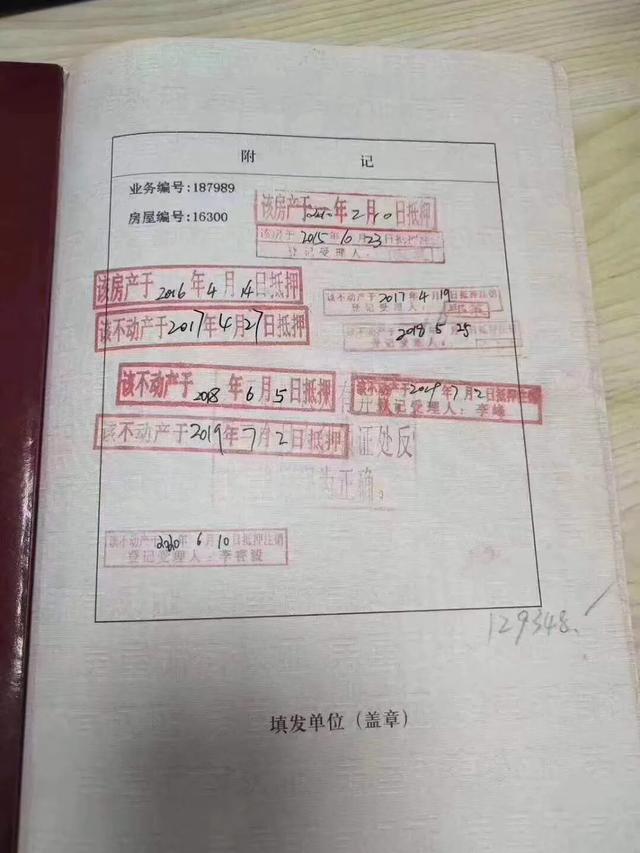 附 记
业务编号:187989
房屋编号:16300
该房产于 年2月10日抵押
该房于2015年10月23日抵押注销
登记受理人:
该房产于2016年4月14日抵押
该不动产于2017年4月19日抵押注销
登记受理人:
该不动产于2017年4月27日抵押
2018 5 25
该不动产于2018年6月5日抵押
该不动产于2019年7月2日抵押注销
登记受理人:李峰
该不动产于2019年7月2日抵押
证处反
为正确。
该不动产于2020年6月10日抵押注销
登记受理人:李睿毅
129348.
填发单位(盖章)